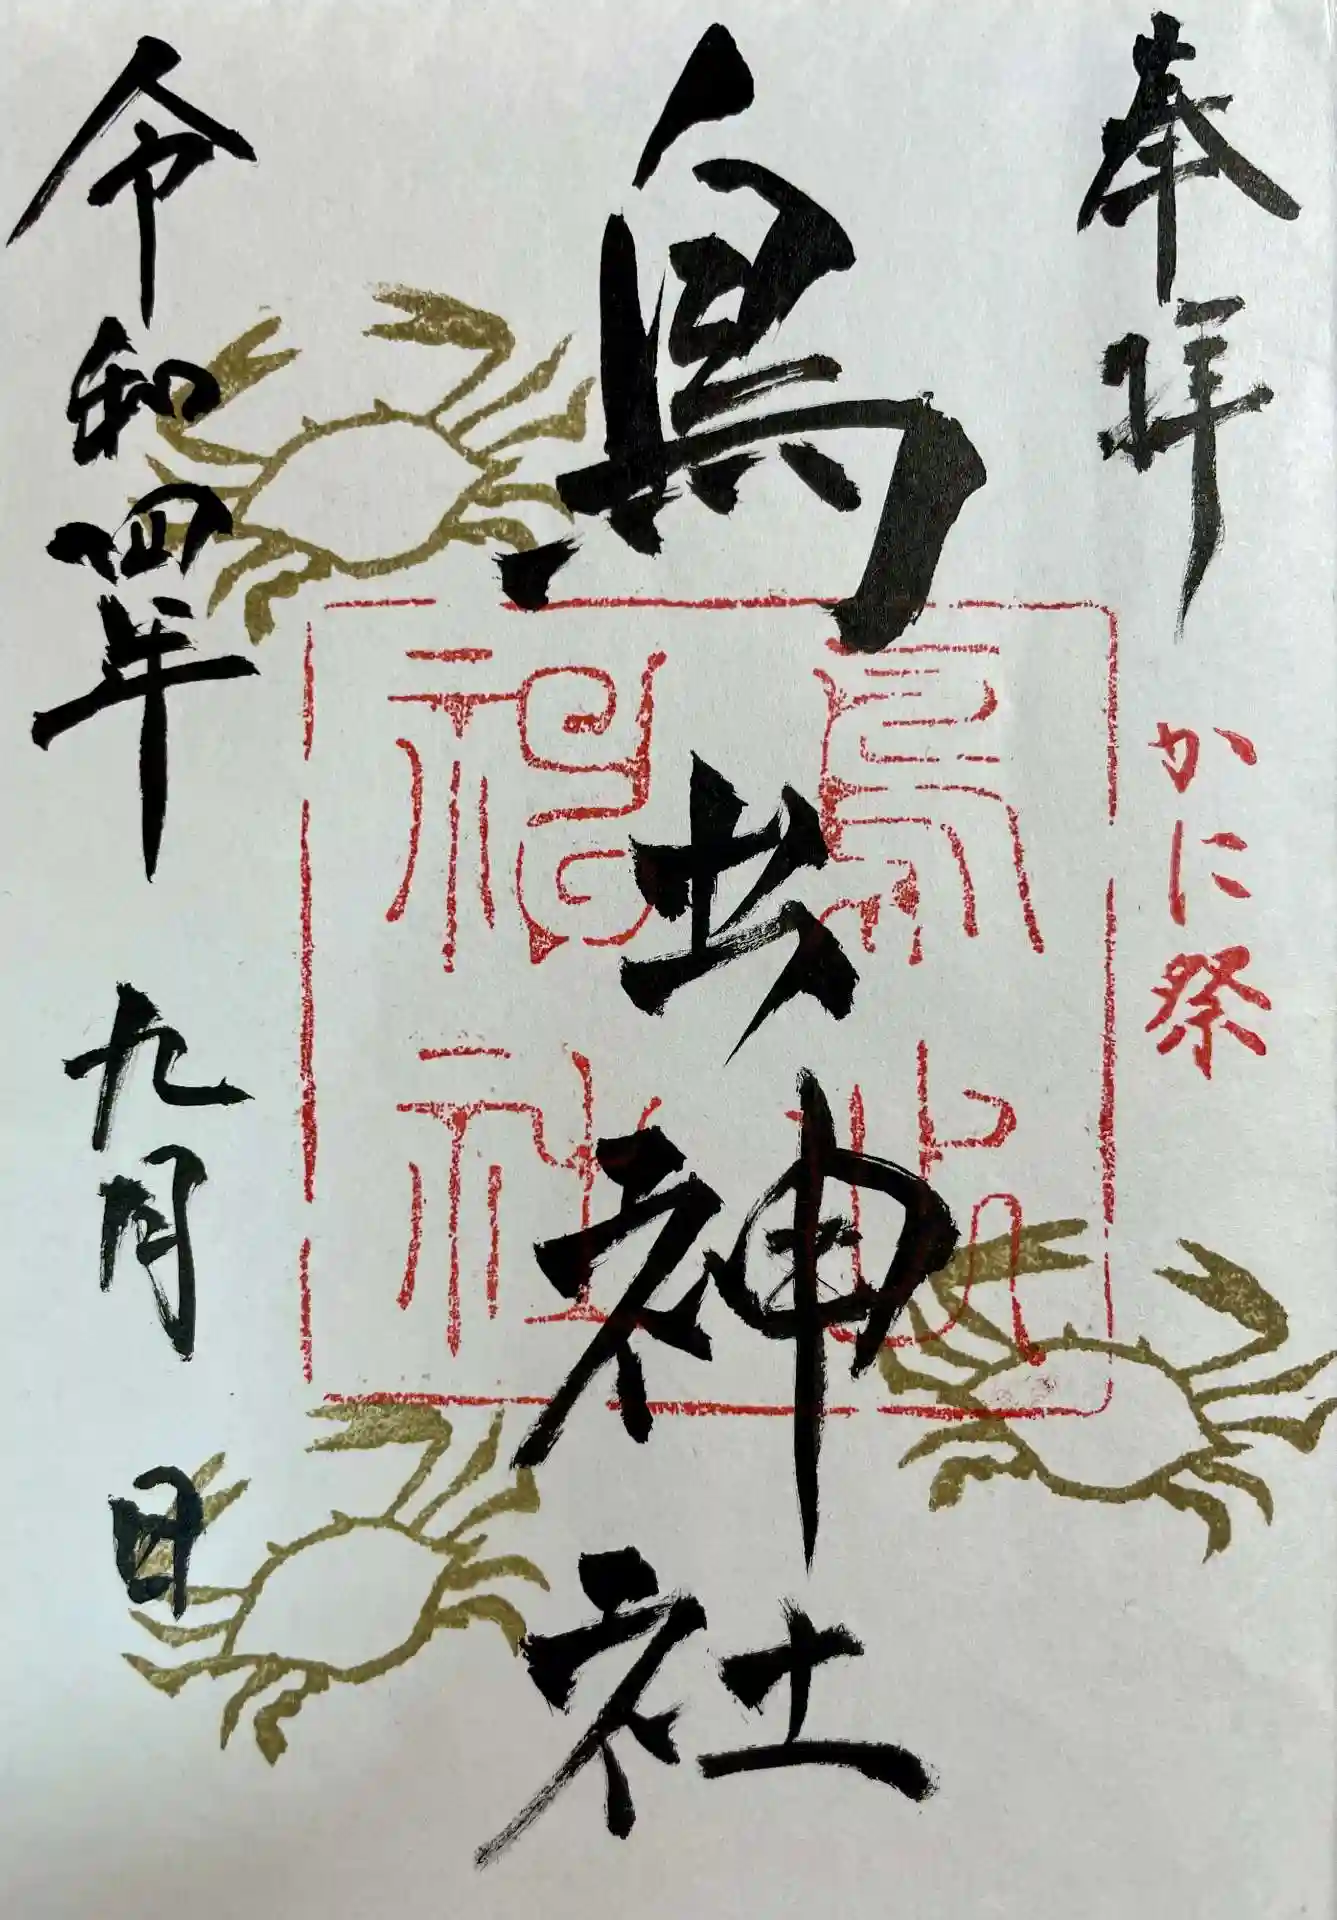 奉拝
かに祭
鳥出神社
鳥出
神社
令和四年 九月 日